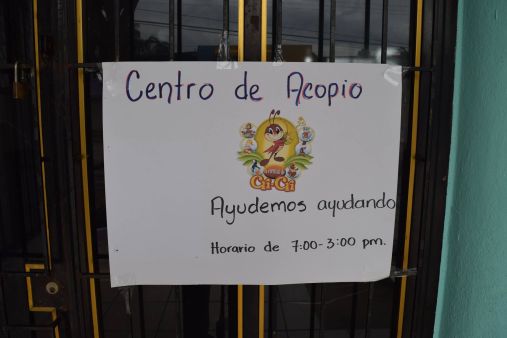 Centro de Acopio
Cri-Cri
Ayudemos ayudando
Horario de 7:00-3:00 pm.